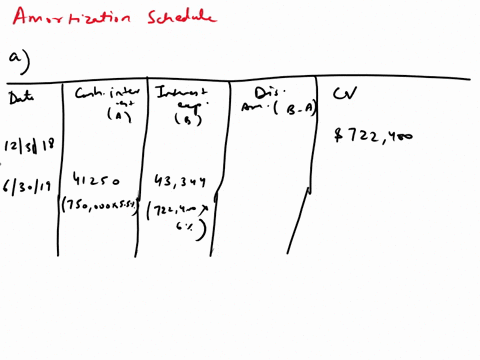 Amortization Schedule
a)
Date Cash inter Interest Dis. CV
est exp. Am. (B-A)
(A) (B)
$722,400
12/31/18
6/30/19 41250 43,344
(750,000x5.5%) (722,400x
6%)